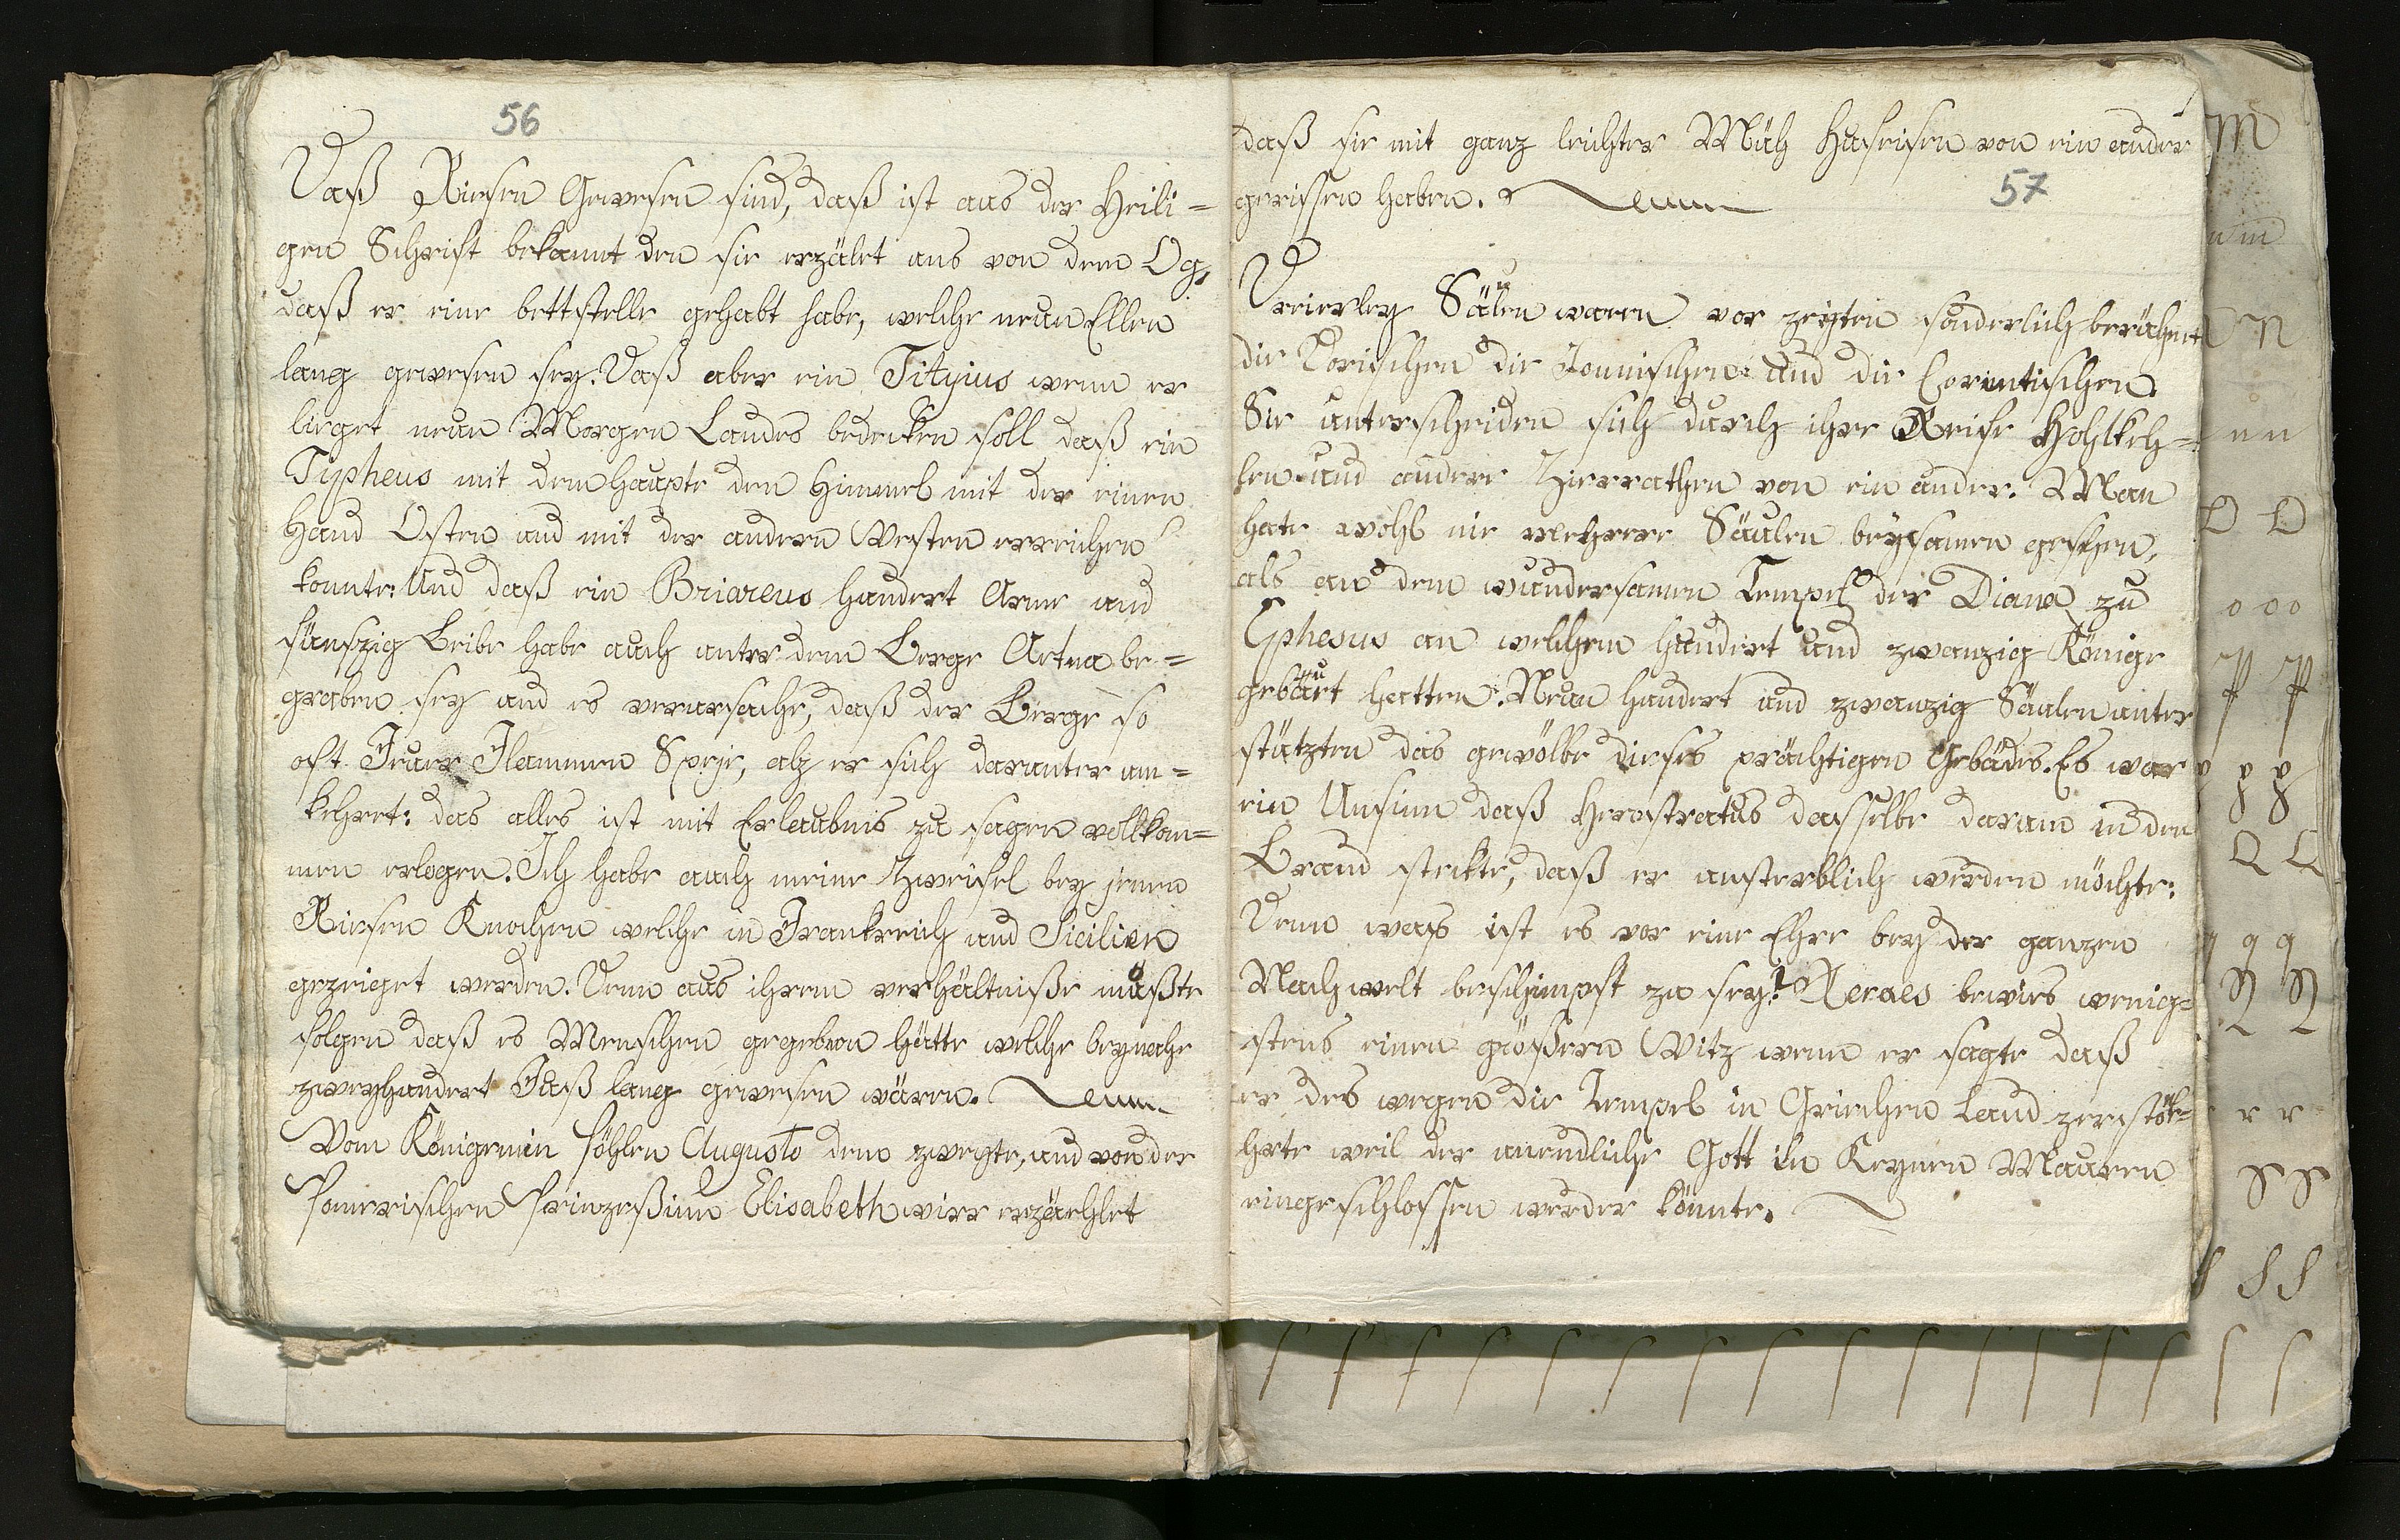 56
Daß Riesen Gewesen sind, daß ist aus der Heili=
gen Schrift bekannt den sie erzälet uns von dem Og,
daß er eine bettstelle gehabt habe, welche neun Ellen
lang gewesen sey. Daß aber ein Tityius wenn er
lieget neun Morgen Landes bedecken soll daß ein
Typheus mit dem Haupte den Himmel mit der einen
Hand Osten und mit der andern Westen erreichen
konnte: Und daß ein Briareus hundert Arme und
fünfzig Leibe habe auch unter dem Berge Aetna be=
graben sey und es verursache, daß der Berge so
oft Feuer Flammen Speje, alz er sich darunter um=
kehret: das alles ist mit Erlaubnis zu sagen vollkom=
men erlogen. Ich habe auch meine Zweifel bey jenen
Riesen Knochen welche in Frankreich und Sicilien
gezeiget werden. Denn aus ihrem verhältniße müßte
folgen daß es Menschen gegeben hätte welche beynahe
zweyhundert Fuß lang gewesen wären.
Vom Königemin Pohlen Augusto dem zweyte, und von der
Pomerischen Prinzeßinn Elisabeth wirr erzaehlet
daß sie mit ganz leichter Müh Hufeisen von ein ander
gerissen haben.
57
Dreierley Säulen waren vor zeyten sonderlich berühmt
die Dorischen die Jonnischen und die Corintischen.
Sie unterscheiden sich durch ihre Reife Hohlkeh=
len und andere Zierrathen von ein ander. Man
hate wohl nie mehrere Säulen beysamen gesehen,
als an dem wundersamen Tempel der Diana zu
Ephesus an welchem hundert und zwanzig Könige
gebaut hatten. Neun hundert und zwanzig Säulen unter
stützten das gewölbe dieses prächtigen Gebäudes. Es war
ein Unsinn daß Herostratus dasselbe darum in den
Brand stekte, daß er unsterblich werden möchte:
Denn was ist es vor eine Ehre bey der ganzen
Nachwelt beschimpft zu sey? Xerxes bewies wenig=
stens einen größern Witz wenn er sagte daß
er des wegen die Tempel in Griechen Land zerstöh=
hrte weil der unendliche Gott in Keynen Mauren
eingeschlossen werder könnte.
M
n m
N
n n
O O
o o o
P P
p p
Q Q
q q q
R R
r r r
S S
s s s